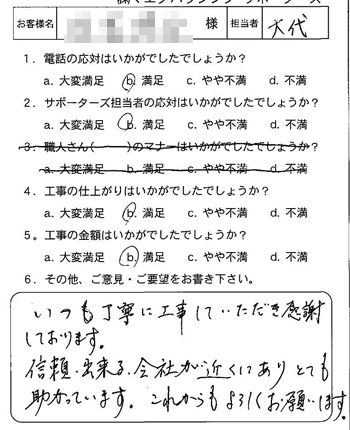 お客様名 様 担当者 大代
1．電話の応対はいかがでしたでしょうか？
a. 大変満足 b. 満足 c. やや不満 d. 不満
2．サポーターズ担当者の応対はいかがでしたでしょうか？
a. 大変満足 b. 満足 c. やや不満 d. 不満
3．職人さん( )のマナーはいかがでしたでしょうか？
a. 大変満足 b. 満足 c. やや不満 d. 不満
4．工事の仕上がりはいかがでしたでしょうか？
a. 大変満足 b. 満足 c. やや不満 d. 不満
5。工事の金額はいかがでしたでしょうか？
a. 大変満足 b. 満足 c. やや不満 d. 不満
6．その他、ご意見・ご要望をお書き下さい。
いつも丁寧に工事していただき感謝
しております。
信頼出来る会社が近くにありとても
助かっています。これからもよろしくお願います。